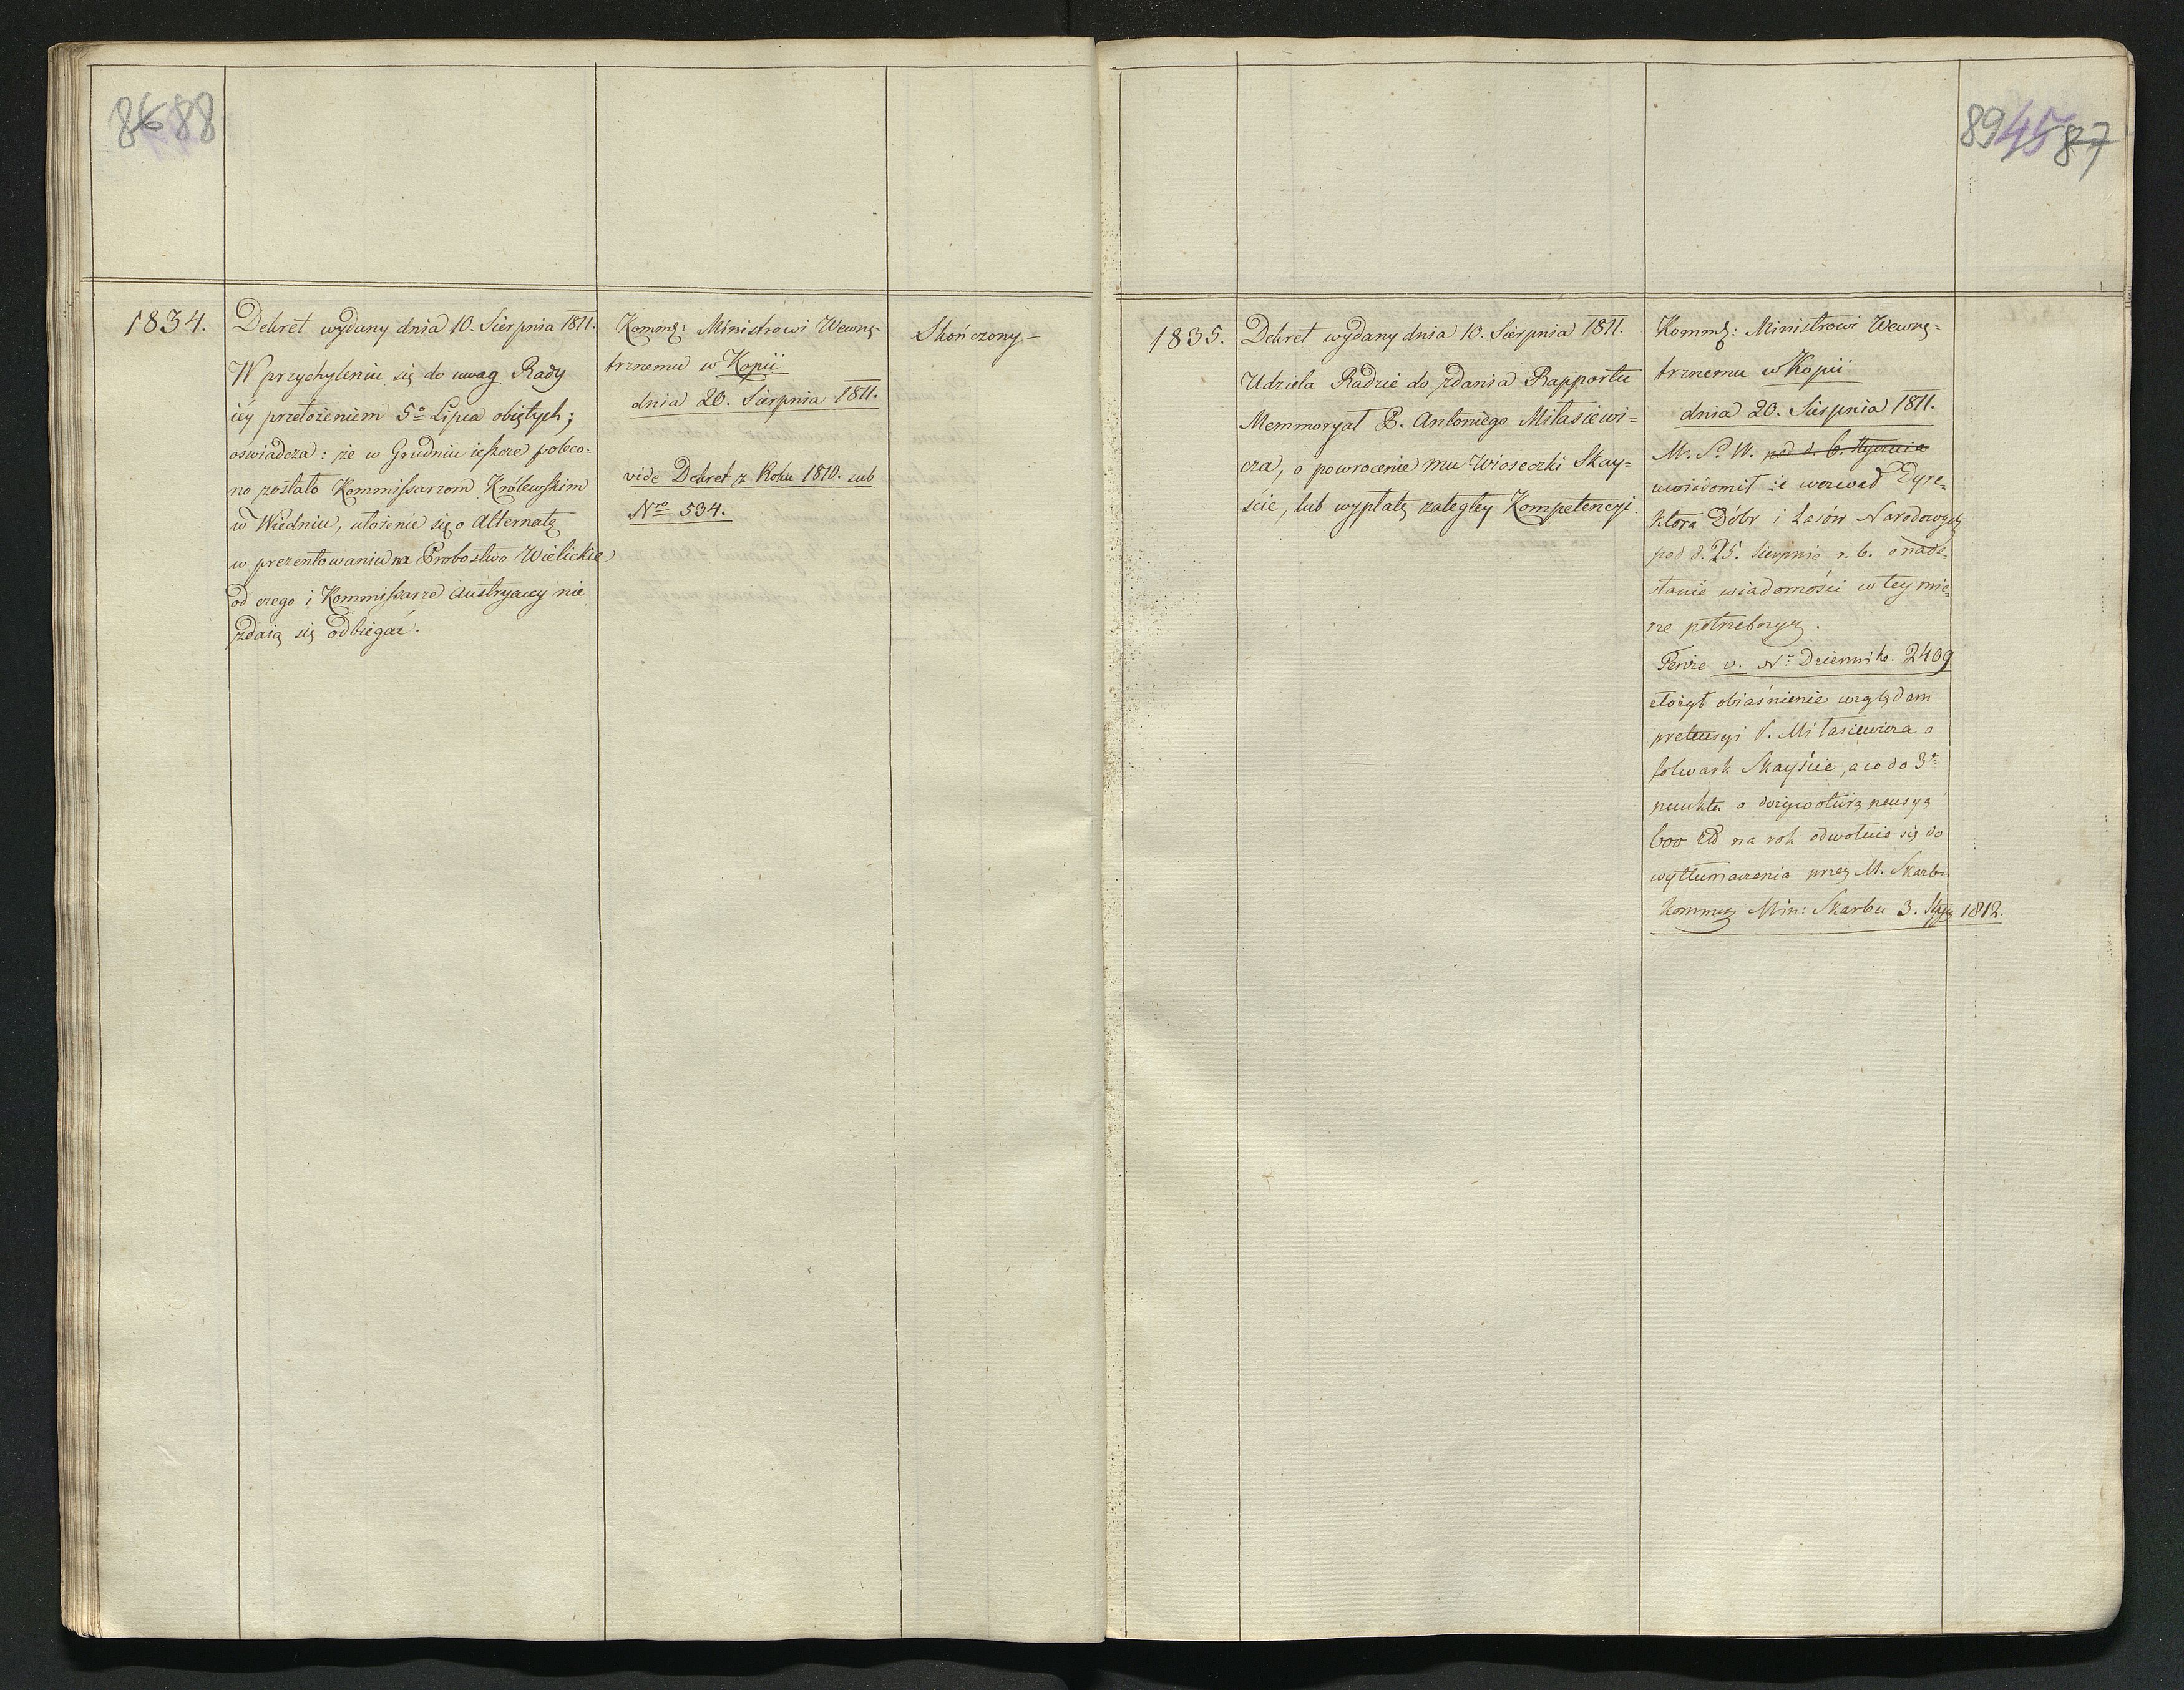 86 88
1834.
Dekret wydany dnia 10. Sierpnia 1811.
W przychyleniu się do uwag Rady
iéy przełożeniem 5º Lipca obiętych;
oswiadcza: że w Grudniu ieszcze poleco=
no zostało Kommissarzom Królewskim
w Wiedniu, ułożenie się o Alternatę
w prezentowaniu na Probostwo Wielickie
od czego i Kommissarze Austryaccy nie
zdaią się odbiegać.
Kommq: Ministrowi Wewnę-
trznemu w Kopii
dnia 20. Sierpnia 1811.
vide Dekret z Roku 1810. sub
Nro 534.
Skończony=
89 45 87
1835.
Dekret wydany dnia 10. Sierpnia 1811.
Udziela Radzie do zdania Rapportu
Memmoryał P. Antoniego Miłasiewi=
cza, o powrocenie mu Wioseczki Skay=
scie, lub wypłatę zaległey Kompetencyi.
Kommq: Ministrowi Wewnę=
trznemu w Kopii
dnia 20. Sierpnia 1811.
M. S. W. pod d. 6. Stycznia
uwiadomił że wezwał Dyre=
ktora Dóbr i Lasów Narodowych
pod d. 25. Sierpnia r. b. o nade=
słanie wiadomości w tey mie=
rze potrzebnych.
Tenże v. Nr Dziennika. 2409
złożył obiaśnienie względem
pretensyi P. Miłasiewicza o
folwark Skayście, a co do 3º
punktu o dożywotnią pensyą
600 zł na rok odwołuie się do
wytłumaczenia przez M. Skarbu
Kommq Min: Skarbu 3. Stycz 1812.